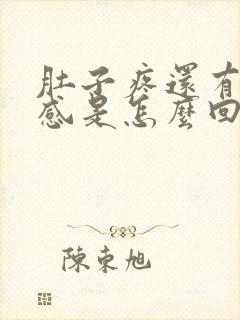 肚子疼還有
感是怎麼回
陳東旭